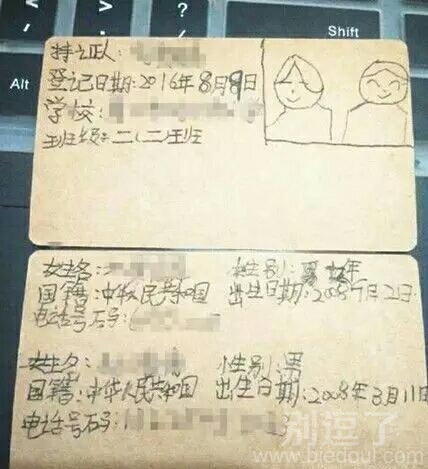 ?
/
Shift
Alt
持证人:
登记日期:2016年8月9日
学校:
班级:二(二)班
姓名: 性别:
国籍:中华人民共和国 出生日期:2008 7月21日
电话号码:
姓名: 性别:男
国籍:中华人民共和国 出生日期:2008年3月11日
电话号码:
别逗了
www.biedoul.com